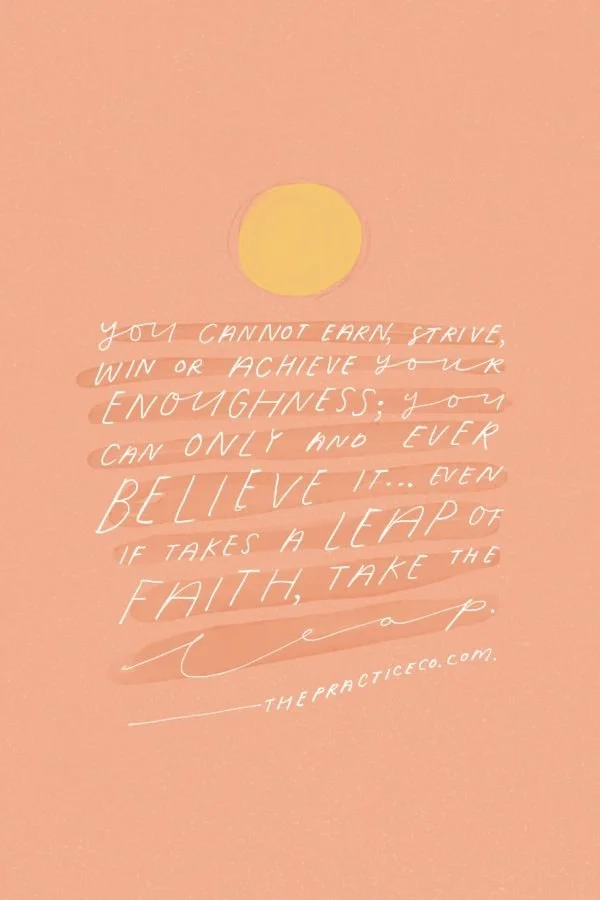 you CANNOT EARN, STRIVE,
WIN OR ACHIEVE your
ENOUGHNESS; you
CAN ONLY AND EVER
BELIEVE IT... EVEN
IF TAKES A LEAP OF
FAITH, TAKE THE
leap.
THEPRACTICECO.COM.